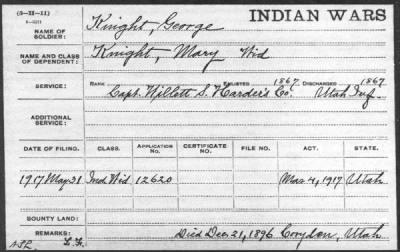 (3-111-11)
INDIAN WARS
NAME OF SOLDIER: Knight, George
NAME AND CLASS OF DEPENDENT: Knight, Mary Wid
SERVICE: RANK ENLISTED 1867 DISCHARGED 1867
Capt. Willett S. Harder's Co. Utah Inf.
ADDITIONAL SERVICE:
DATE OF FILING. CLASS. APPLICATION NO. CERTIFICATE NO. FILE NO. ACT. STATE.
1917 May 31 Ind Wid 12620 Mar 4, 1917 Utah
BOUNTY LAND:
REMARKS: Died Dec 21, 1896 Croydon, Utah